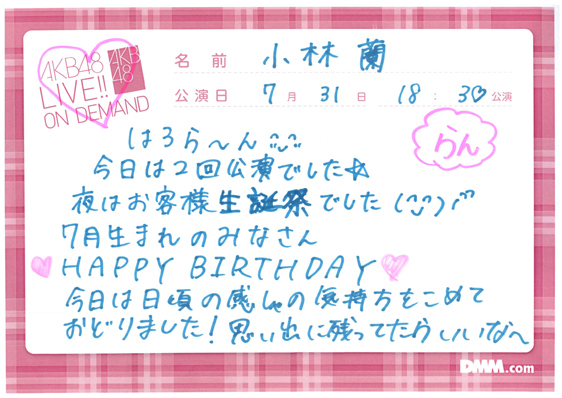 AKB48
LIVE!!
ON DEMAND
AKB
48
名前 小林 蘭
公演日 7月31日 18:30公演
らん
はろら〜ん
今日は2回公演でした☆
夜はお客様生誕祭でした(¨)
7月生まれのみなさん
♡HAPPY BIRTHDAY♡
今日は日頃の感しゃの気持ちをこめて
おどりました!思い出に残ってたらいいな〜
DMM.com